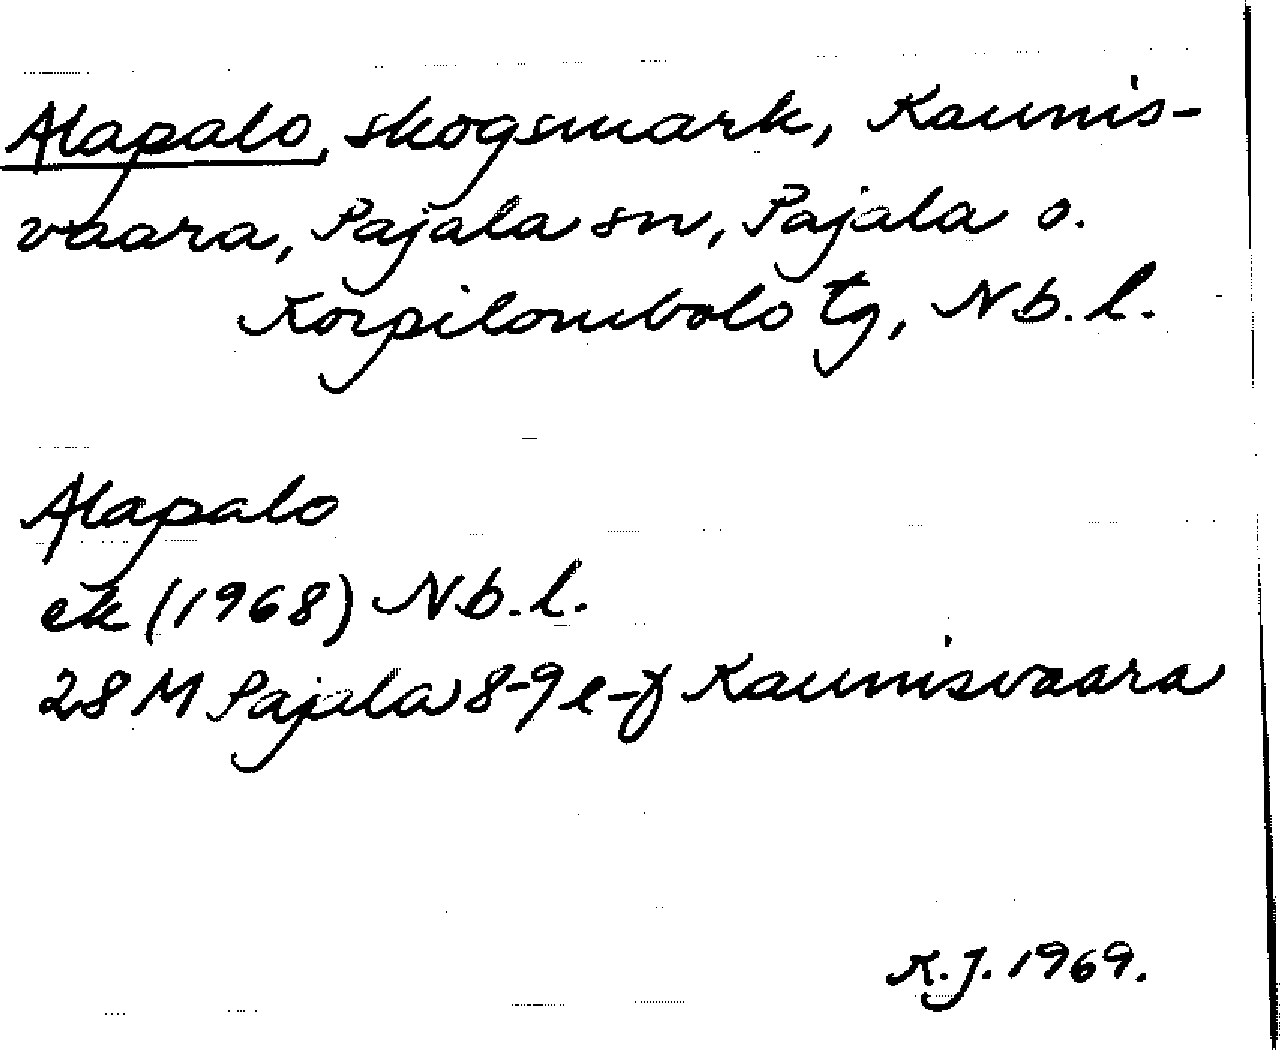 Alapalo, skogsmark, Kaunis-
vaara, Pajala sn, Pajala o.
Korpilombolo tg, Nb. l.
Alapalo
ek (1968) Nb. l.
28 M Pajala 8-9 e-f Kaunisvaara
K.J. 1969.